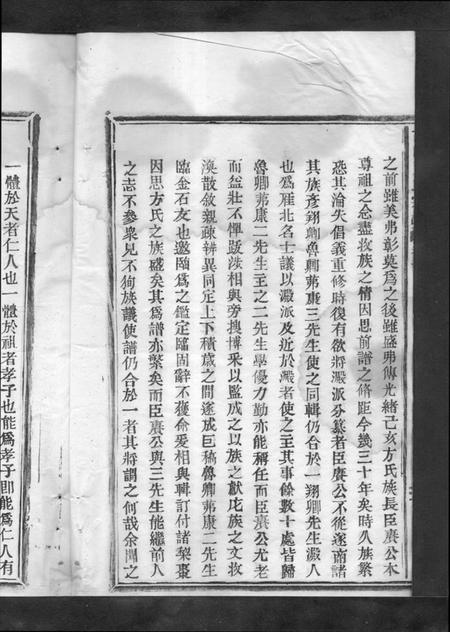 之前雖美弗彰莫爲之後雖盛弗傳光緒己亥方氏族長臣賡公本
尊祖之念盡收族之情因思前譜之修距今幾三十年矣時久族繁
恐其淪失倡義重修時復有欲將澱派分纂者臣賡公不從遂商諸
其族彦翊卿魯卿弗康三先生使之同輯仍合於一翊卿先生澱人
也爲雄北名士議以澱派及近於澱者使之主其事餘數十處皆歸
魯卿弗康二先生主之二先生學優力勤亦能稱任而臣賡公尤老
而益壯不憚跋涉相與旁搜博采以監成之以族之獻庀族之文收
渙散敘親疎辨異同定上下積歲之間遂成巨稿魯卿弗康二先生
臨金石友也邀臨爲之鑑定臨固辭不獲僉爰相與輯訂付諸梨棗
因思方氏之族盛矣其爲譜亦繁矣而臣賡公與三先生能繼前人
之志不參衆見不狥族議使譜仍合於一者其將謂之何哉余聞之
一體於天者仁人也一體於祖者孝子也能爲孝子即能爲仁人有